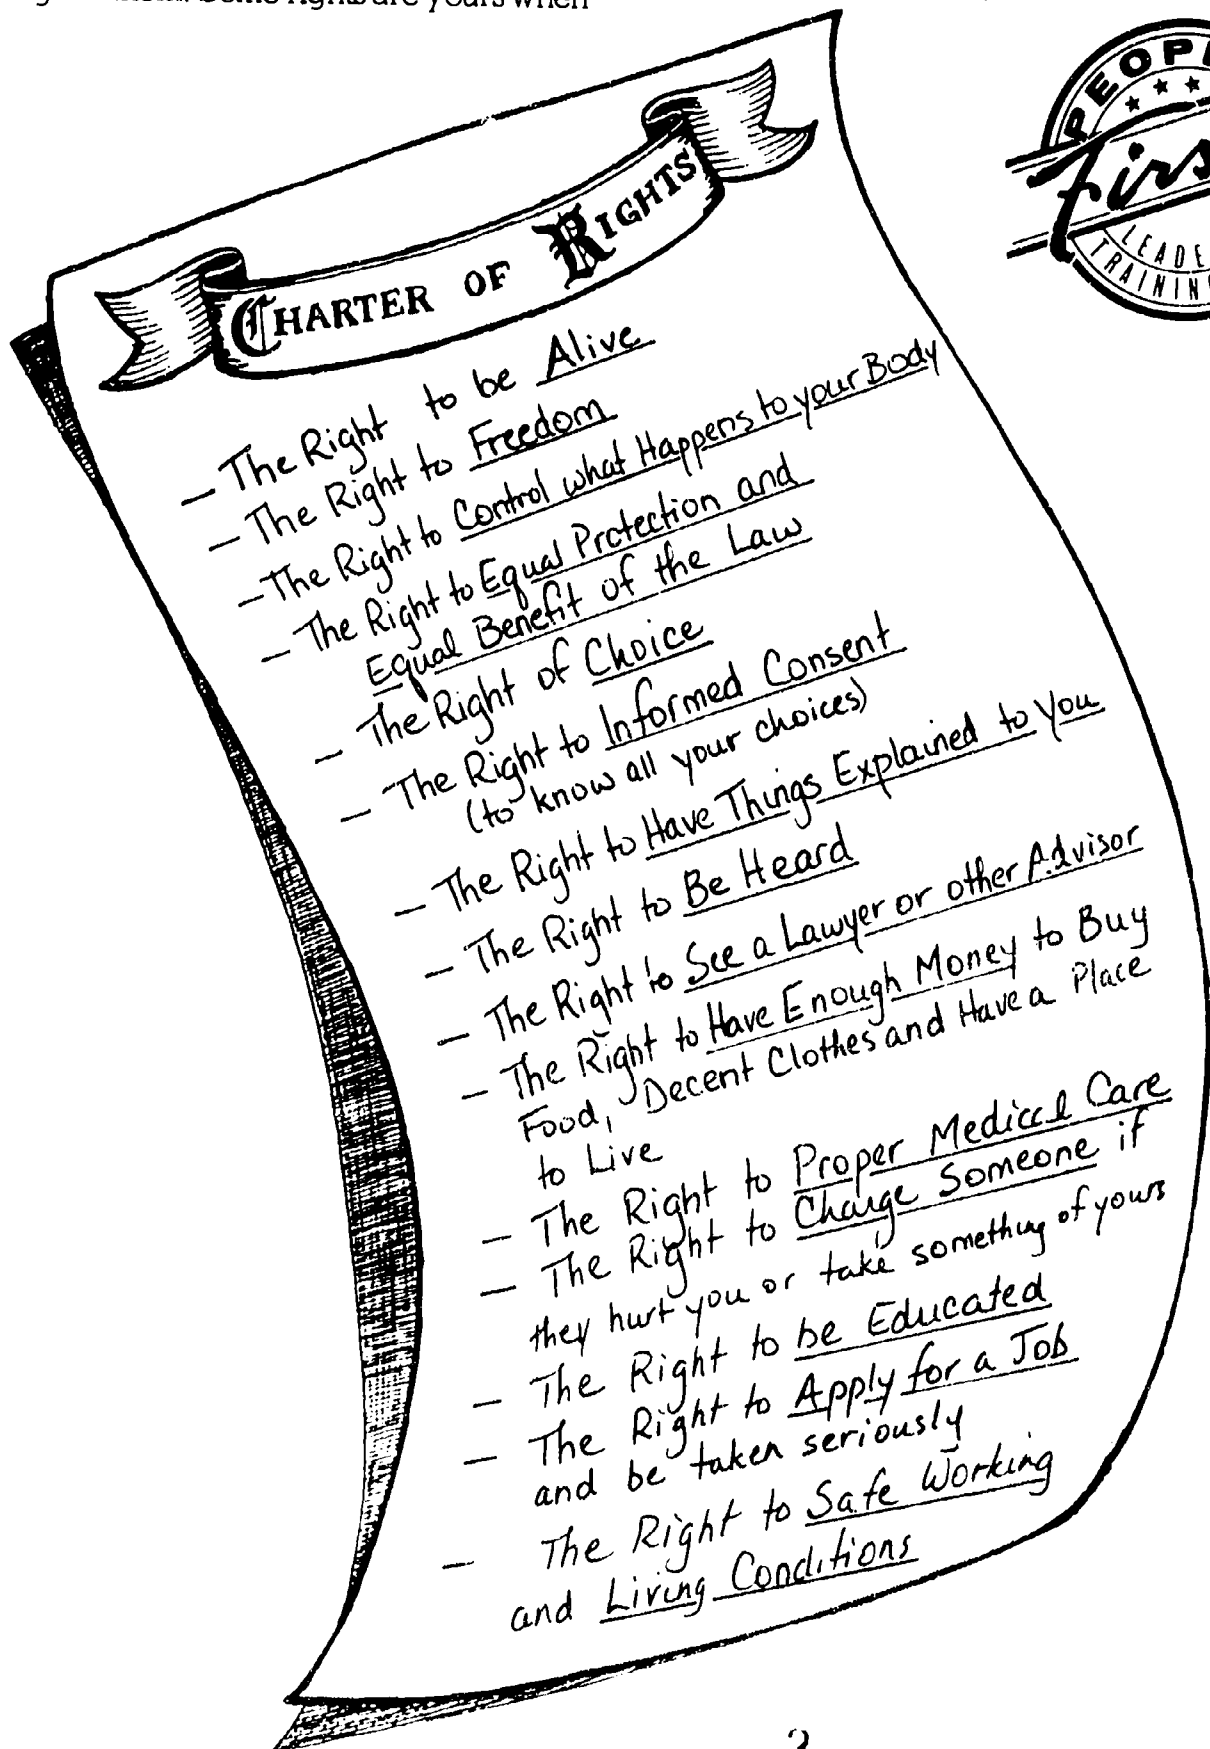 rights are yours when
PEOP
firs
LEADE
TRAININ
CHARTER OF RIGHTS
– The Right to be Alive
– The Right to Freedom
– The Right to Control what Happens to your Body
– The Right to Equal Protection and
Equal Benefit of the Law
– The Right of Choice
– The Right to Informed Consent
(to know all your choices)
– The Right to Have Things Explained to You
– The Right to Be Heard
– The Right to See a Lawyer or other Advisor
– The Right to Have Enough Money to Buy
Food, Decent Clothes and Have a Place
to Live
– The Right to Proper Medical Care
– The Right to Charge Someone if
they hurt you or take something of yours
– The Right to be Educated
– The Right to Apply for a Job
and be taken seriously
– The Right to Safe Working
and Living Conditions